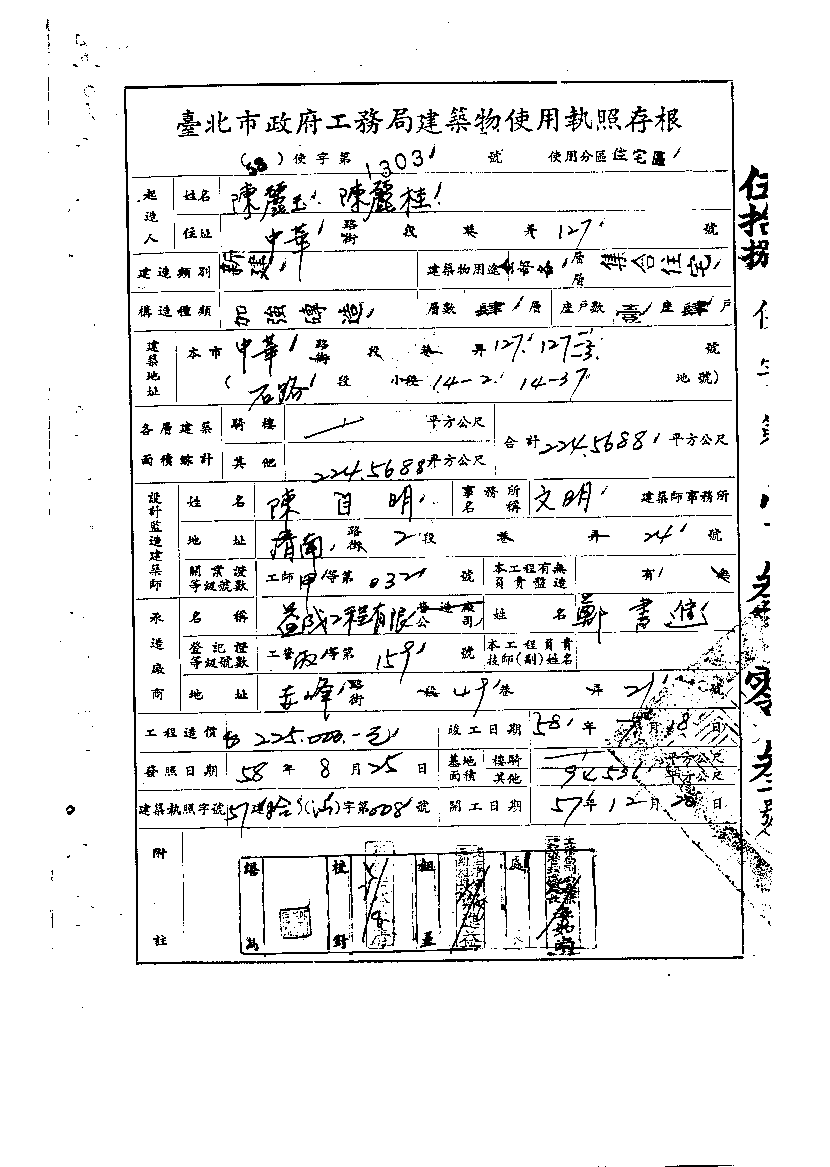 臺北市政府工務局建築物使用執照存根
(58)使字第1303號 使用分區住宅區
起造人 姓名 陳麗玉 陳麗桂
住址 中華路街 段 巷 弄127號
建造類別 新建 建築物用途 層層 集合住宅
構造種類 加強磚造 層數 肆 層 座戶數 壹 座 肆 戶
建築地址 本市 中華路街 段 巷 弄127. 號
( 段 小段 14-2 14-37 地號)
各層建築面積綜計 騎樓 平方公尺 合計 224.5688 平方公尺
其他 224.5688 平方公尺
設計監造建築師 姓名 陳 明 事務所名稱 文明 建築師事務所
地址 南路街 2段 巷 弄24號
開業證等級號數 工師甲等第032號 本工程有無負責監造 有 無
承造廠商 名稱 益成工程有限 營造廠公司 姓名 鄭書進
登記證等級號數 工營丙等第159號 本工程負責技師(副)姓名
地址 赤峰路街 段49巷 弄21號
工程造價 225.000.-元 竣工日期 58年 月 8日
發照日期 58年8月25日 基地面積 騎樓 平方公尺
其他 94.536 平方公尺
建築執照字號 57建 字第008號 開工日期 57年12月20日
附註
繕 校 組 處
為 對 長
伍拾捌
使
字
第
零